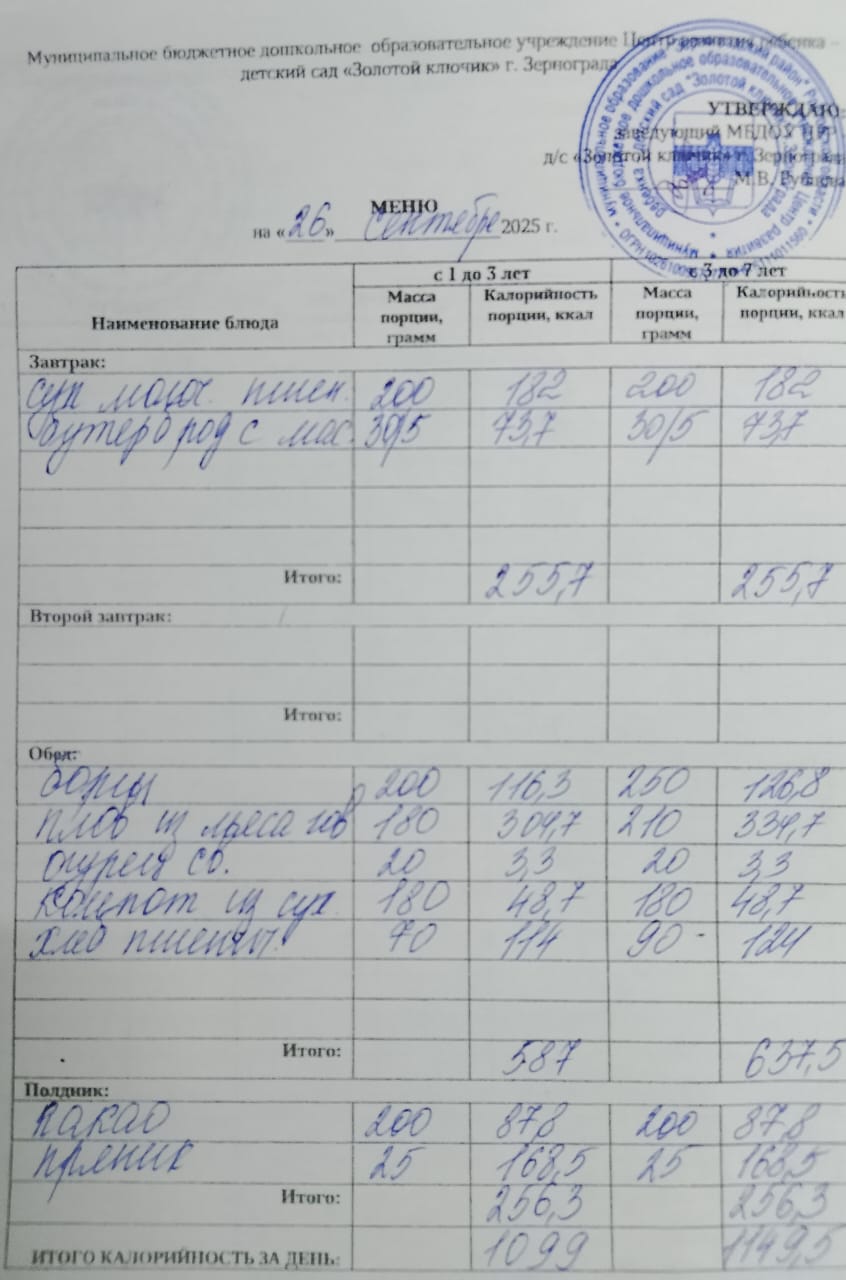 Муниципальное бюджетное дошкольное образовательное учреждение Центр развития ребенка –
детский сад «Золотой ключик» г. Зернограда
УТВЕРЖДАЮ:
заведующий МБДОУ ЦРР
д/с «Золотой ключик» г. Зернограда
М.В.
МЕНЮ
на «26» сентября 2025 г.
Наименование блюда с 1 до 3 лет с 3 до 7 лет
Масса порции, грамм Калорийность порции, ккал Масса порции, грамм Калорийность порции, ккал
Завтрак:
суп молоч. пшен. 200 182 200 182
бутерброд с мас. 30/5 73,7 30/5 73,7
Итого: 255,7 255,7
Второй завтрак:
Итого:
Обед:
борщ 200 116,3 250 126,8
плов из мяса гов 180 304,7 210 334,7
огурец св. 20 3,3 20 3,3
компот из сух. 180 48,7 180 48,7
хлеб пшенич. 70 114 90 - 124
Итого: 587 637,5
Полдник:
какао 200 87,8 200 87,8
пряник 25 168,5 25 168,5
Итого: 256,3 256,3
ИТОГО КАЛОРИЙНОСТЬ ЗА ДЕНЬ: 1099 1149,5